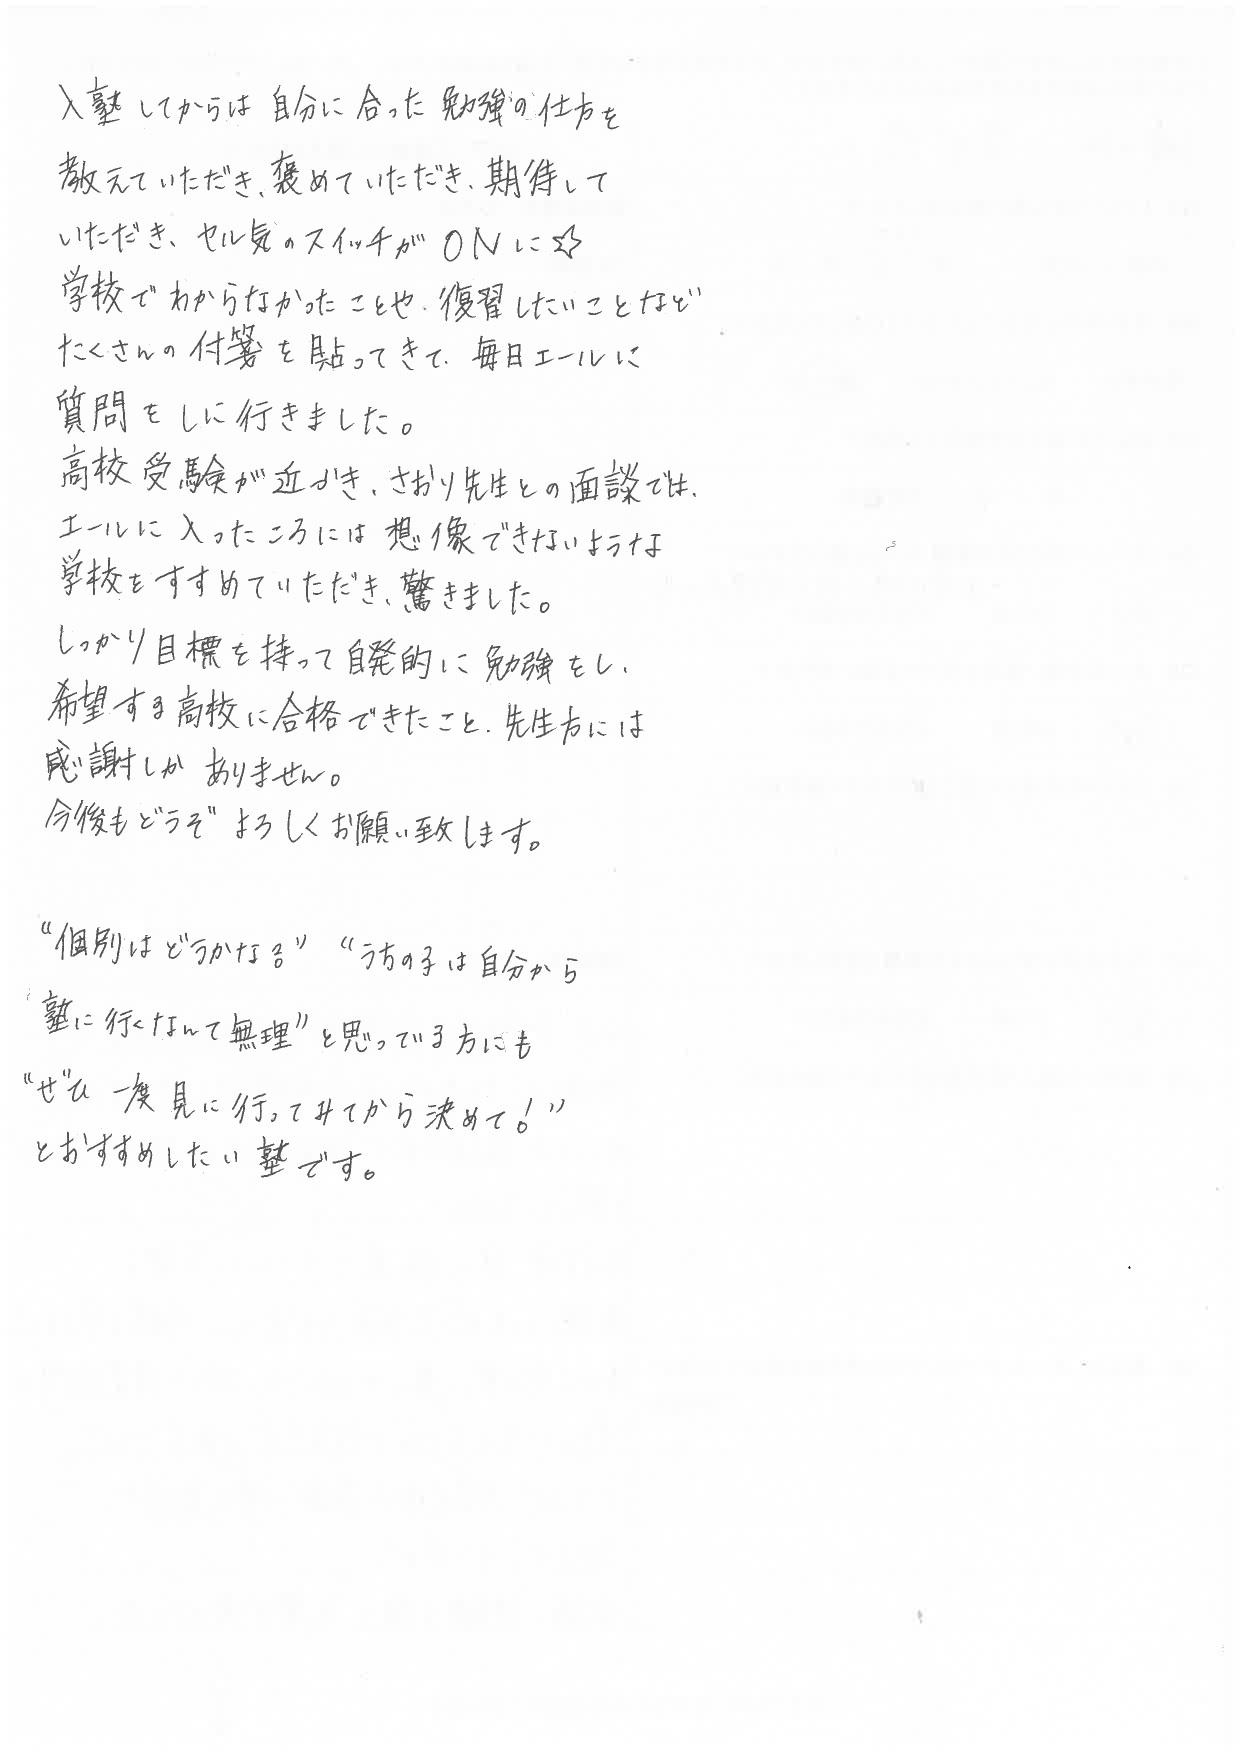 入塾してからは自分に合った勉強の仕方を
教えていただき、褒めていただき、期待して
いただき、ヤル気のスイッチがONに☆
学校でわからなかったことや、復習したいことなど
たくさんの付箋を貼ってきて、毎日エールに
質問をしに行きました。
高校受験が近づき、さおり先生との面談では、
エールに入ったころには想像できないような
学校をすすめていただき、驚きました。
しっかり目標を持って自発的に勉強をし、
希望する高校に合格できたこと、先生方には
感謝しかありません。
今後もどうぞよろしくお願い致します。
“個別はどうかな?” “うちの子は自分から
塾に行くなんて無理”と思っている方にも
“ぜひ一度見に行ってみてから決めて!”
とおすすめしたい塾です。